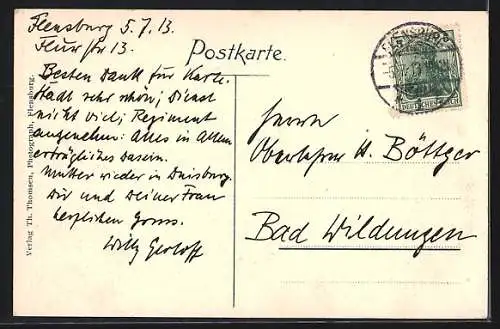 Flensburg 5.7.13.
Flurstr 13.
Postkarte.
Besten Dank für Karte.
Stadt sehr schön; Dienst
nicht viel; Regiment
angenehm: Alles in Allem
erträgliches Dasein.
Mutter wieder in Duisburg.
Dir und Deiner Frau
herzlichen Gruss.
Willy Gerloff
Verlag Th. Thomsen, Photograph, Flensburg.
FLENSBURG
DEUTSCHES REICH
Herrn
Oberlehrer H. Böttger
Bad Wildungen